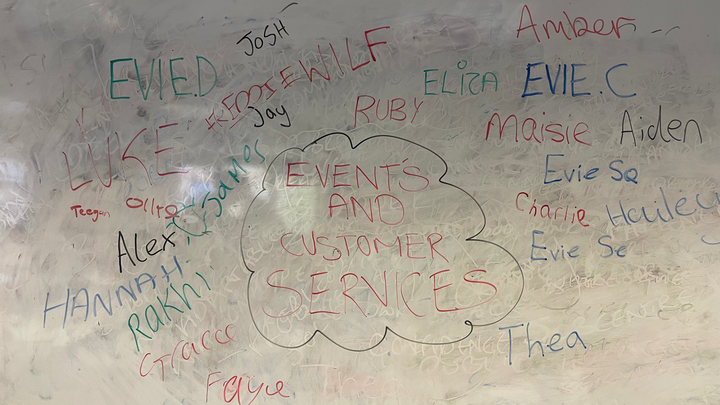 JOSH
Amber
EVIE.D
FREDDIE WILF
ELIZA
EVIE.C
Jay
RUBY
LUKE
Maisie
Aiden
James
EVENTS
AND
CUSTOMER
SERVICES
Evie Sa
Teegan
Charlie
Hailey
Alex
Evie Se
HANNAH
Rakhi
Grace
Thea
Faye